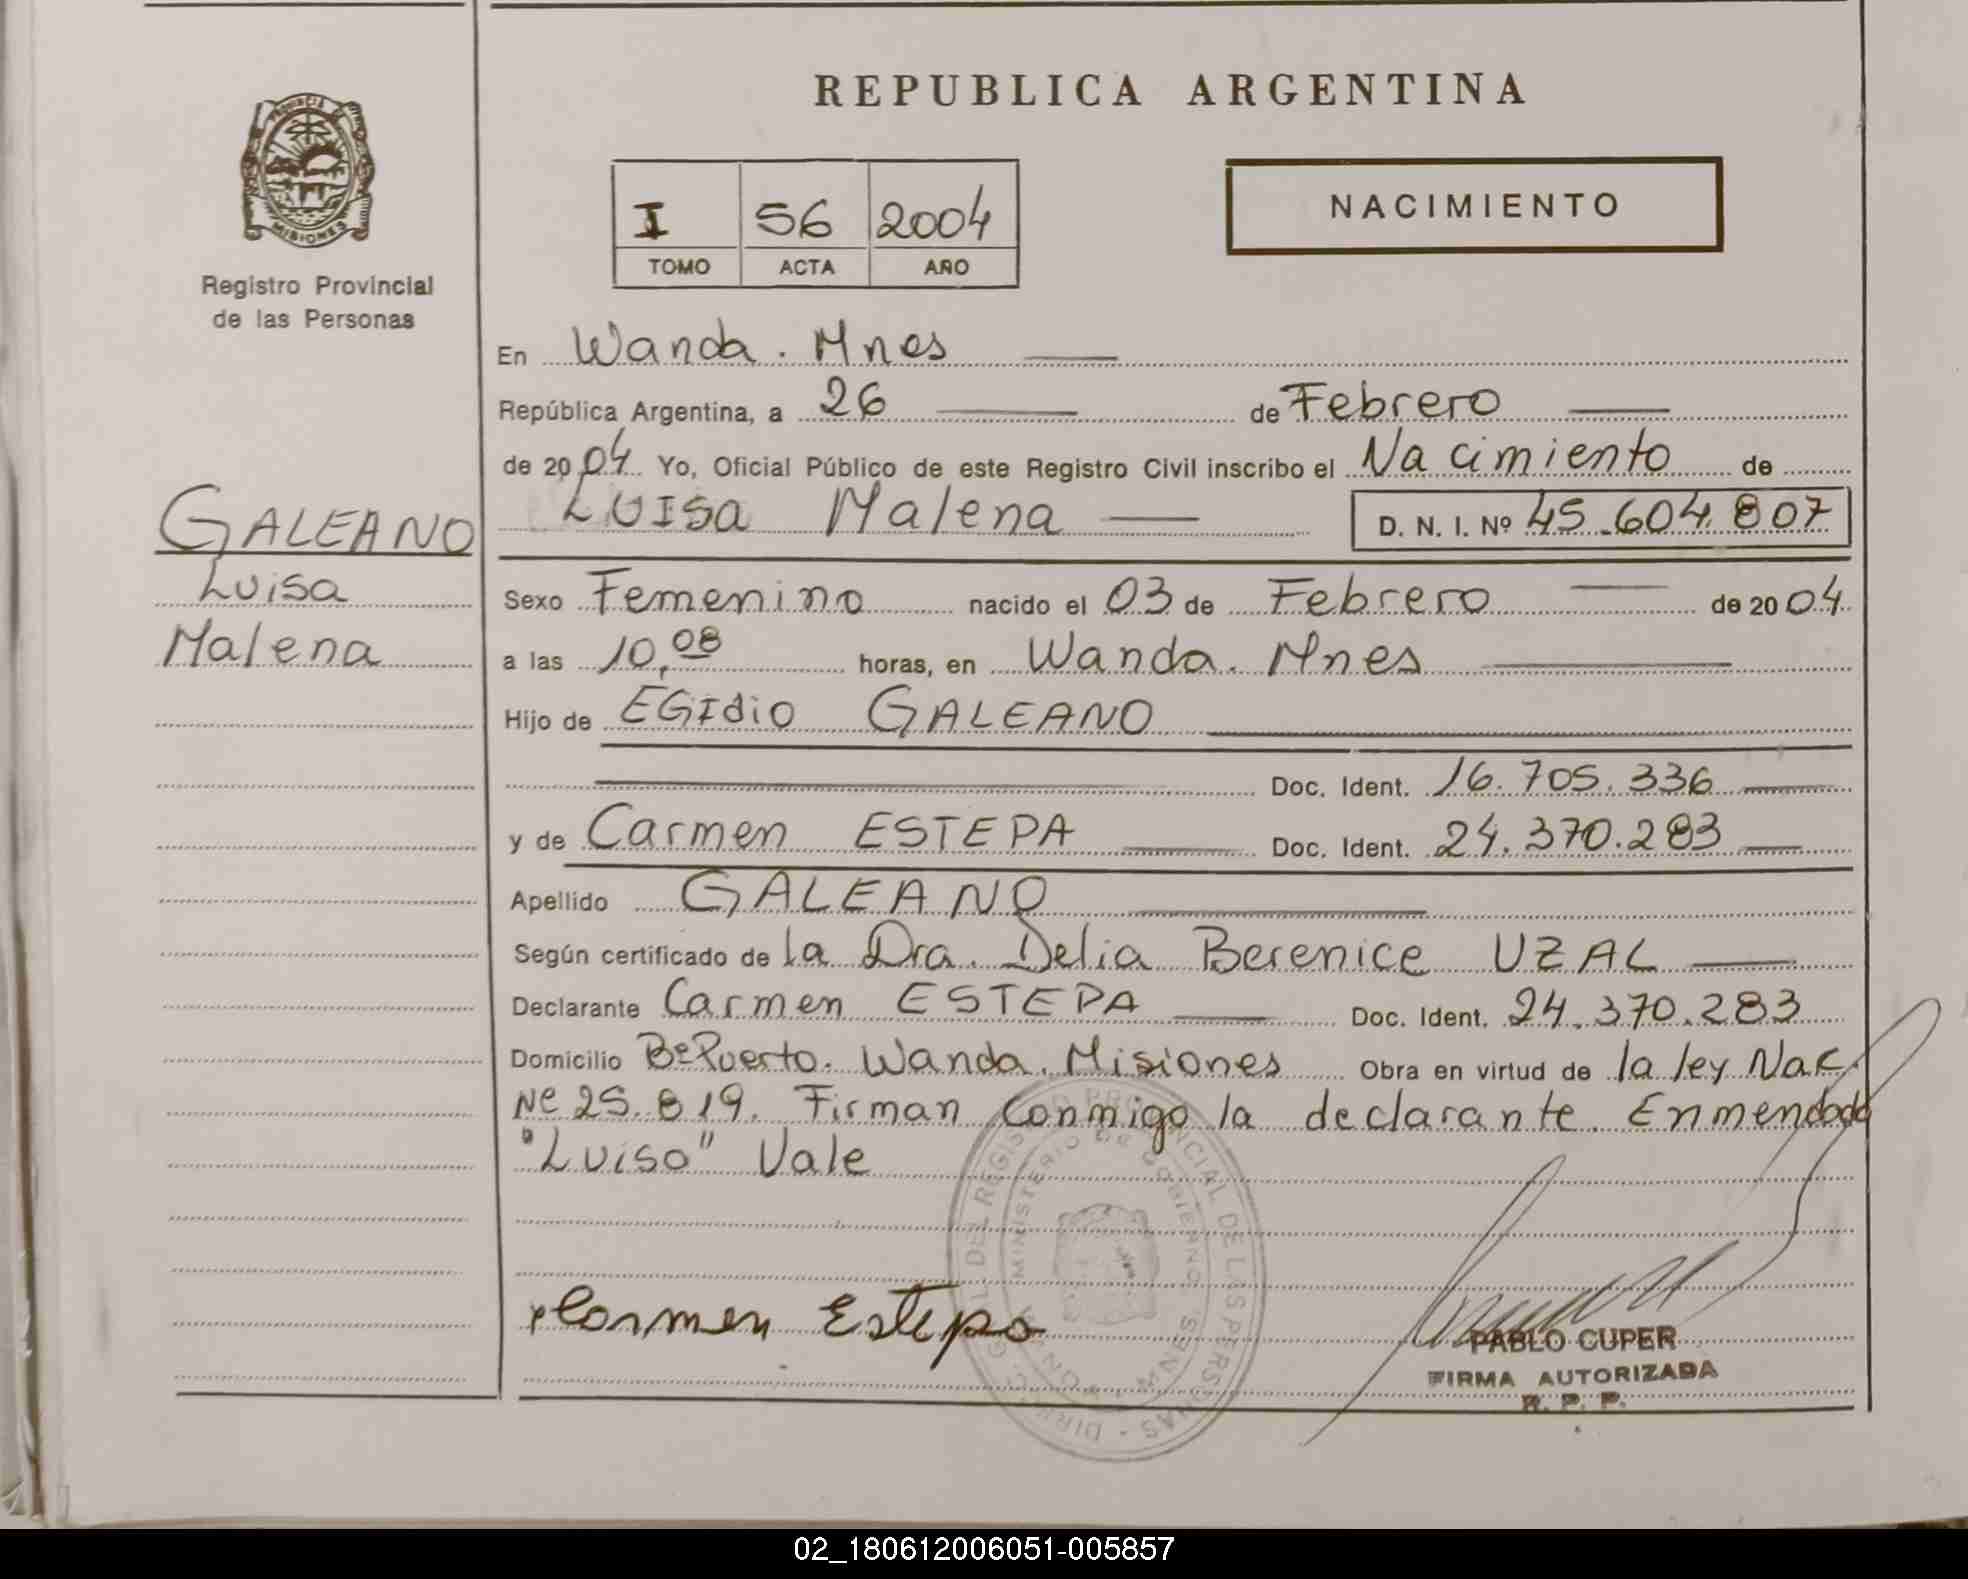 REPUBLICA ARGENTINA
PROVINCIA DE
MISIONES
Registro Provincial
de las Personas
I 56 2004
TOMO ACTA AÑO
NACIMIENTO
GALEANO
Luisa
Malena
En Wanda. Mnes
República Argentina, a 26 de Febrero
de 2004 Yo, Oficial Público de este Registro Civil inscribo el Nacimiento de
LUISa Malena D. N. I. Nº 45.604.807
Sexo Femenino nacido el 03 de Febrero de 2004
a las 10,08 horas, en Wanda. Mnes
Hijo de EGIdio GALEANO
Doc. Ident. 16.705.336
y de Carmen ESTEPA Doc. Ident. 24.370.283
Apellido GALEANO
Según certificado de la Dra. Delia Berenice UZAL
Declarante Carmen ESTEPA Doc. Ident. 24.370.283
Domicilio Bº Puerto. Wanda. Misiones Obra en virtud de la ley Nac.
Nº 25.819. Firman conmigo la declarante. Enmendado
"Luisa" Vale
Carmen Estepa
DEL REGISTRO PROVINCIAL DE LAS PERSONAS
MINISTERIO DE GOBIERNO
MNES
PABLO CUPER
FIRMA AUTORIZADA
R. P. P.
02_180612006051-005857